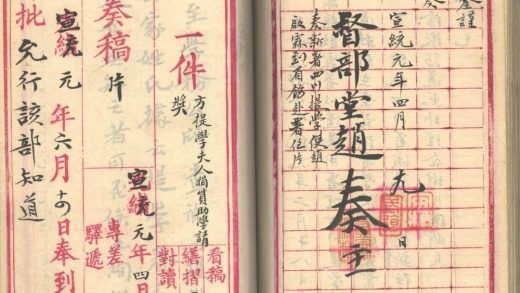 謹
奏
宣統元年四月 九 日
督部堂趙 奏
奏新署四川提學使趙
啟霖到省飭赴署任片
一件 方提學夫人捐資助學請
獎
看稿
繕摺
對讀
奏稿 片
宣統元年四日
專差
驛遞
宣統元年六月 日奉到
批 允行該部知道